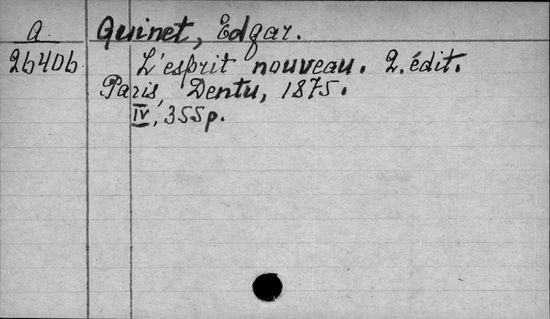 A Quinet, Edgar.
26406 L'esprit nouveau. 2. édit.
Paris, Dentu, 1875.
IV, 355 p.